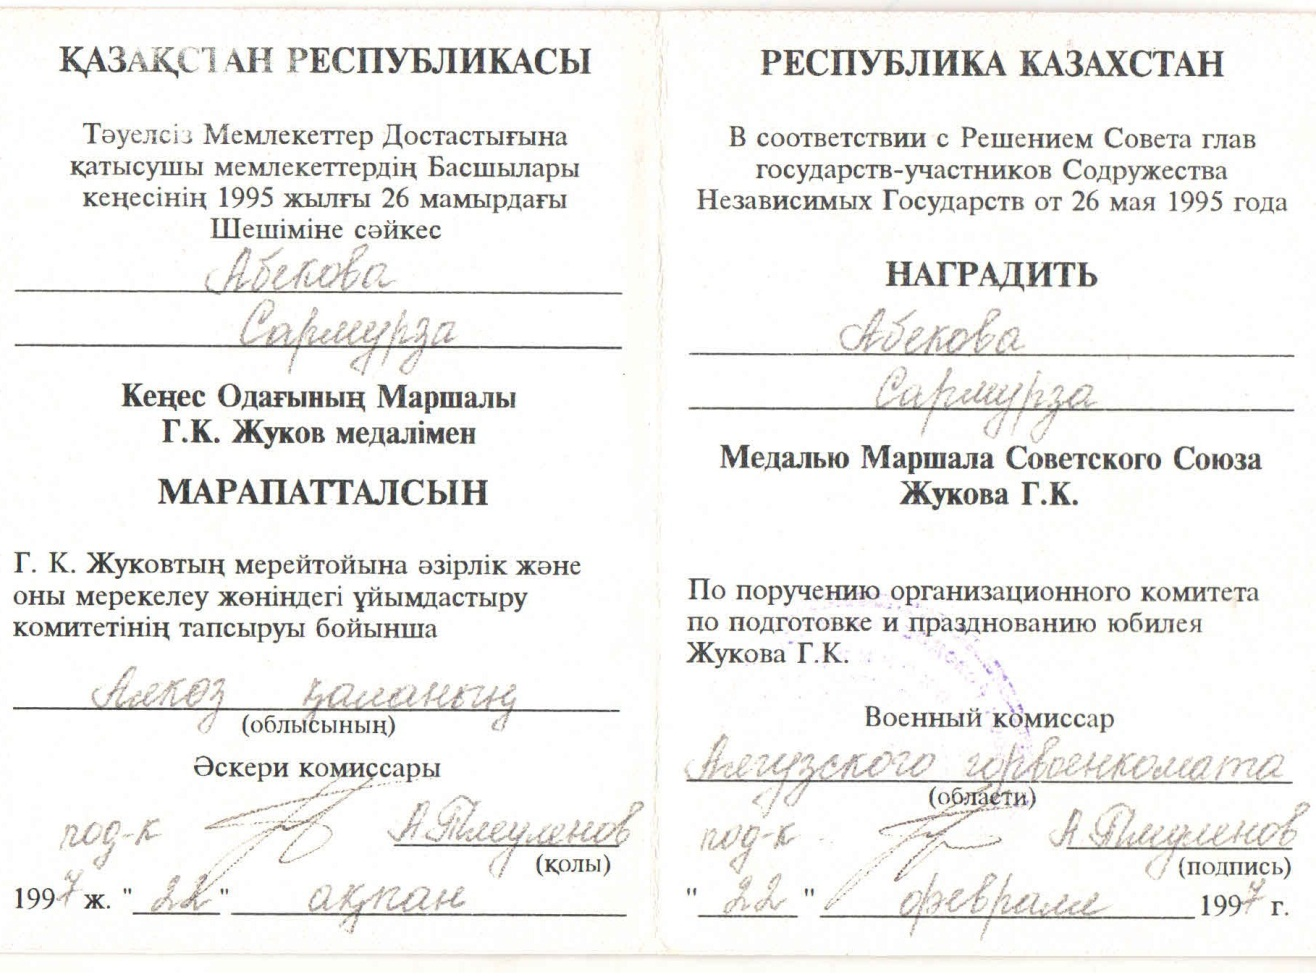 ҚАЗАҚСТАН РЕСПУБЛИКАСЫ
Тәуелсіз Мемлекеттер Достастығына
қатысушы мемлекеттердің Басшылары
кеңесінің 1995 жылғы 26 мамырдағы
Шешіміне сәйкес
Абекова
Сармурза
Кеңес Одағының Маршалы
Г.К. Жуков медалімен
МАРАПАТТАЛСЫН
Г. К. Жуковтың мерейтойына әзірлік және
оны мерекелеу жөніндегі ұйымдастыру
комитетінің тапсыруы бойынша
Аякөз қаланың
(облысының)
Әскери комиссары
под-к А.Тлеуленов
(қолы)
1997 ж. "22" ақпан
РЕСПУБЛИКА КАЗАХСТАН
В соответствии с Решением Совета глав
государств-участников Содружества
Независимых Государств от 26 мая 1995 года
НАГРАДИТЬ
Абекова
Сармурза
Медалью Маршала Советского Союза
Жукова Г.К.
По поручению организационного комитета
по подготовке и празднованию юбилея
Жукова Г.К.
Военный комиссар
Аягузского горвоенкомата
(области)
под-к А.Тлеуленов
(подпись)
"22" февраля 1997 г.